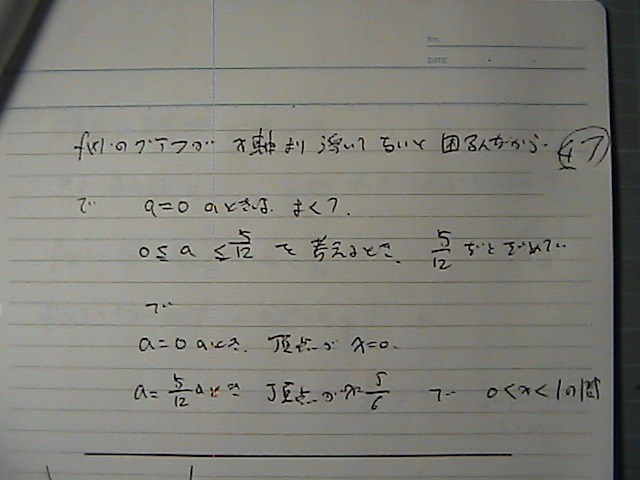 No.
DATE
f(x)のグラフが x軸より浮いてないと 困るんだから.
で a=0 のときは まくて.
0≦a≦5/12 で 考えるとき. 5/12 だと
で
a=0 のとき. 頂点が x=0.
a=5/12 のとき 頂点が x=5/6 で 0<x<1の間